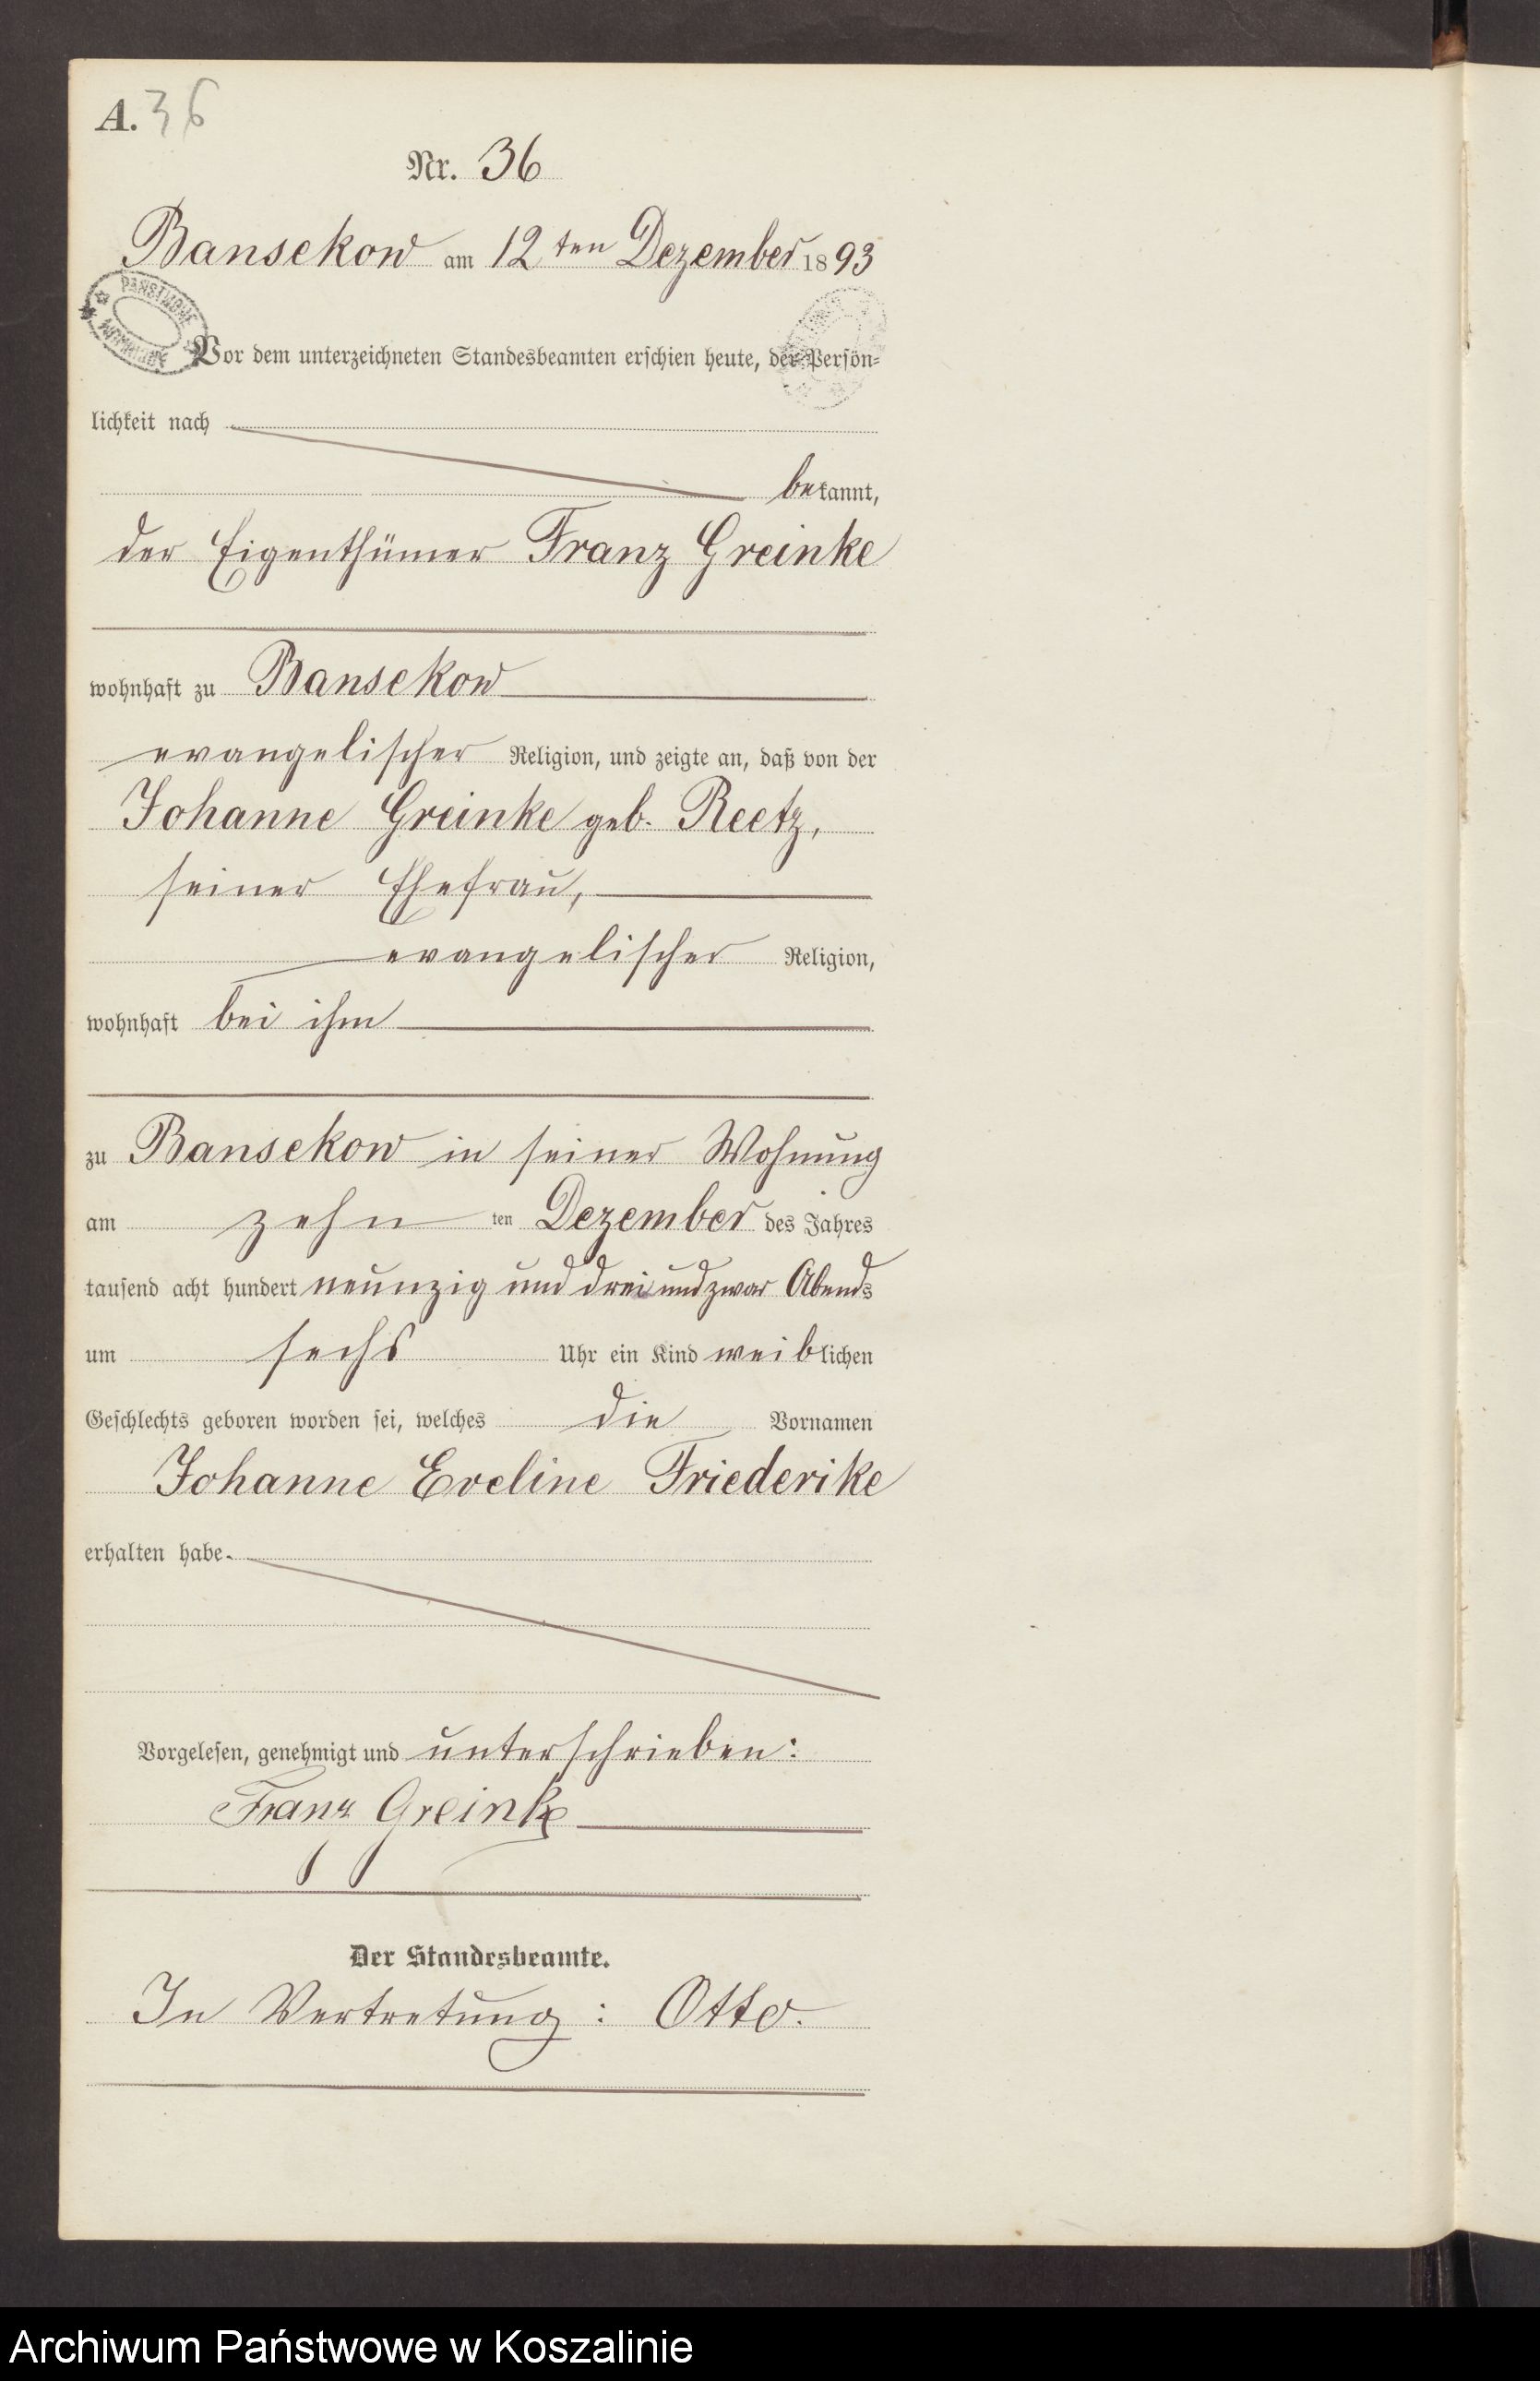 A. 36
Nr. 36
Bansekow am 12ten Dezember 1893
PAŃSTWOWE
ARCHIWUM
Vor dem unterzeichneten Standesbeamten erschien heute, der Persön-
lichkeit nach
bekannt,
der Eigenthümer Franz Greinke
wohnhaft zu Bansekow
evangelischer Religion, und zeigte an, daß von der
Johanne Greinke geb. Reetz,
seiner Ehefrau,
evangelischer Religion,
wohnhaft bei ihm
zu Bansekow in seiner Wohnung
am zehn ten Dezember des Jahres
tausend acht hundert neunzig und drei und zwar Abends
um sechs Uhr ein Kind weiblichen
Geschlechts geboren worden sei, welches die Vornamen
Johanne Eveline Friederike
erhalten habe.
Vorgelesen, genehmigt und unterschrieben:
Franz Greinke
Der Standesbeamte.
In Vertretung: Otto.
Archiwum Państwowe w Koszalinie